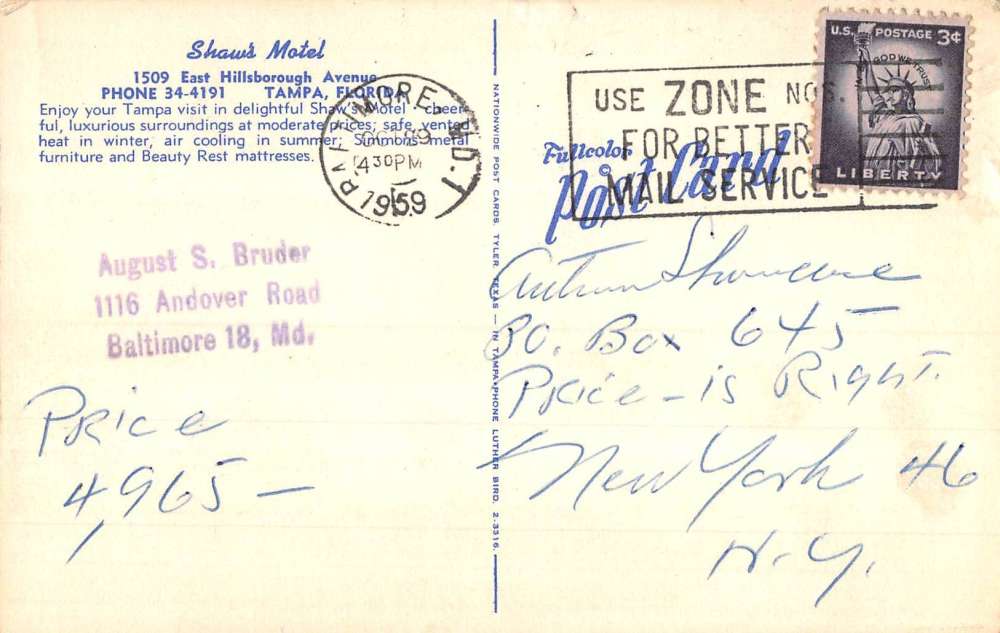 Shaw's Motel
1509 East Hillsborough Avenue
PHONE 34-4191 TAMPA, FLORIDA
Enjoy your Tampa visit in delightful Shaw's Motel cheer-
ful, luxurious surroundings at moderate prices; safe, vented
heat in winter, air cooling in summer; Simmons metal
furniture and Beauty Rest mattresses.
BALTIMORE, MD. 1
430 PM
1959
USE ZONE NOS.
FOR BETTER
MAIL SERVICE
U.S. POSTAGE 3¢
IN GOD WE TRUST
LIBERTY
Fullcolor
Post Card
NATIONWIDE POST CARDS, TYLER, TEXAS — IN TAMPA-PHONE LUTHER BIRD. 2-3316.
August S. Bruder
1116 Andover Road
Baltimore 18, Md.
Price
4,965 —
Autumn Showcase
PO. Box 645
Price-is Right.
New York 46
N.Y.